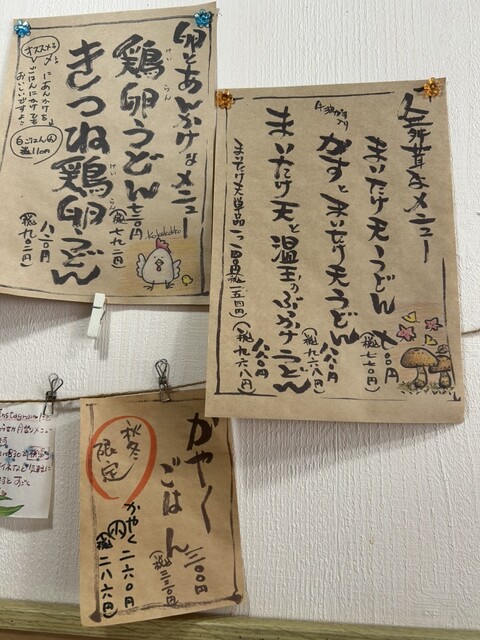 卵とあんかけなメニュー
鶏卵うどん
けいらん
七二〇円
(税七九二円)
きつね鶏卵うどん
けいらん
八二〇円
(税九〇二円)
オススメ
〆にあんかけを
ごはんにかけても
おいしいですよ
白ごはん小
税110円
Kokekokko
まいたけ天うどん
七〇〇円
(税七七〇円)
かすとまいたけ天うどん
八八〇円
(税九六八円)
まいたけ天と温玉のぶっかけうどん
八八〇円
(税九六八円)
まいたけ天単品
かやくごはん
三〇〇円
(税三三〇円)
かやく小
二六〇円
(税二八六円)
秋冬限定
Instagram